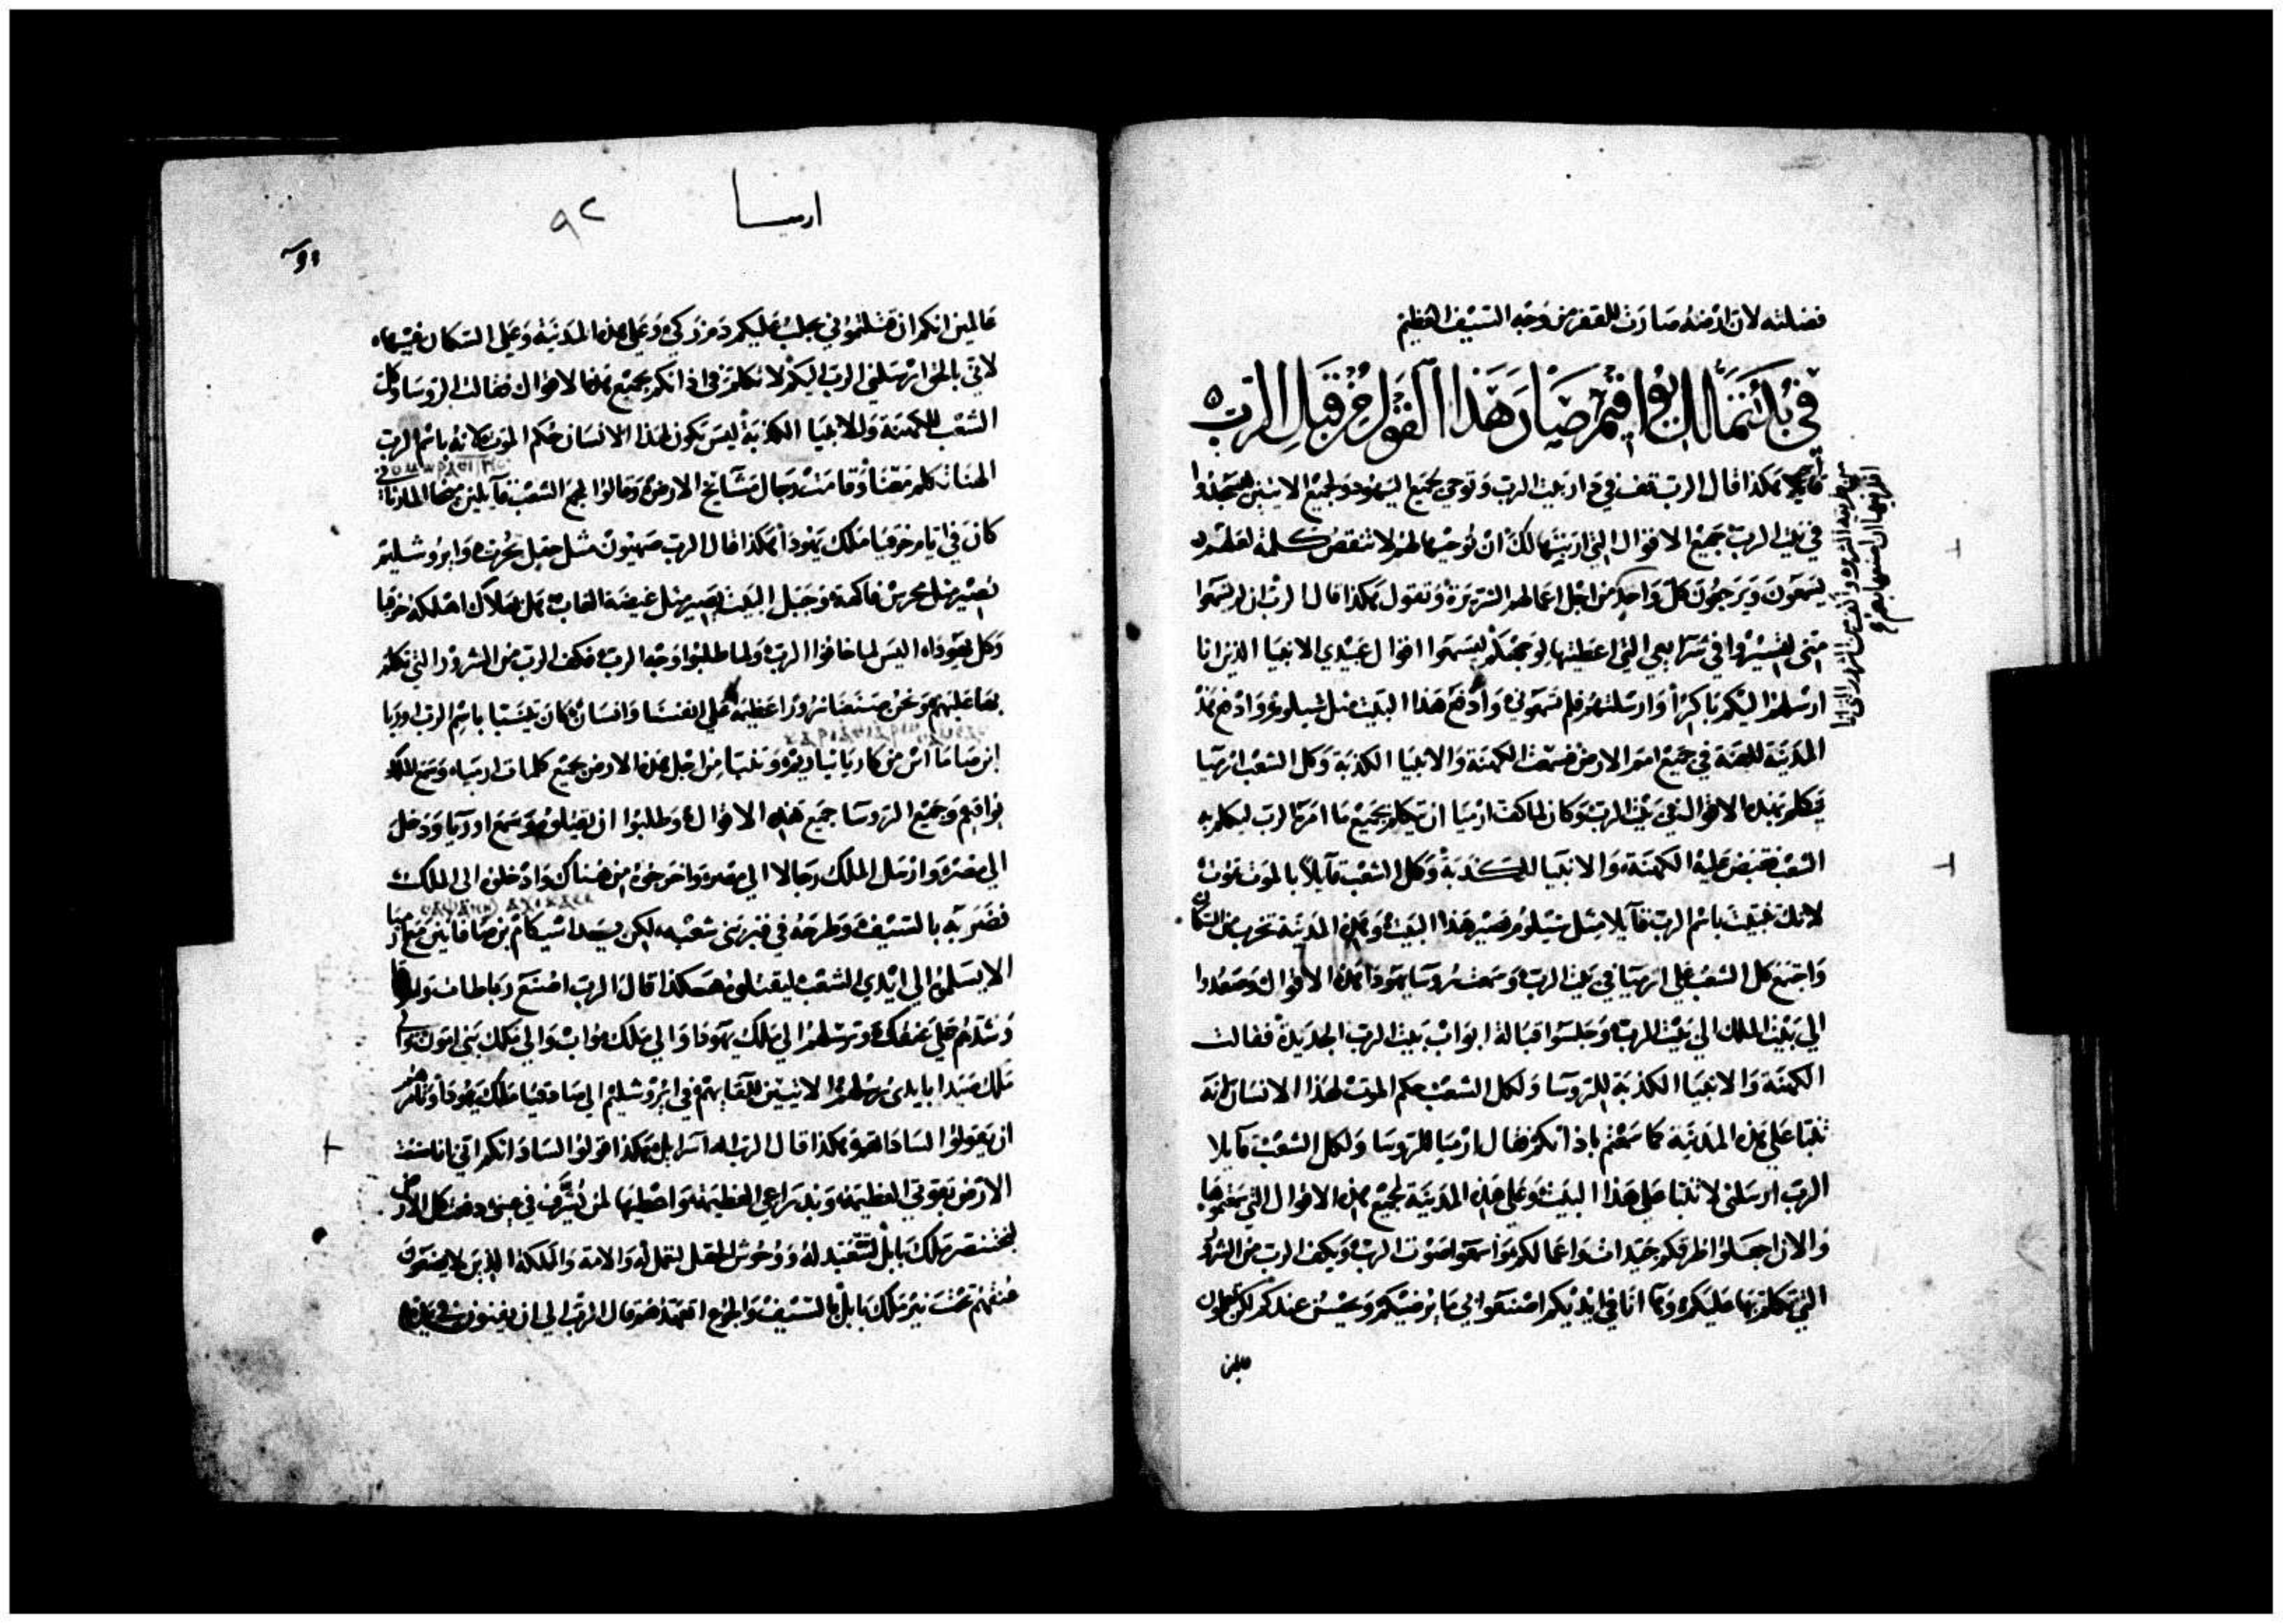 فضلته لان ارضه صارت للقفر من وجه السيف العظيم
في بدء تملك يواقيم صار هذا القول من قبل الرب
قايلا هكذا قال الرب قف في دار بيت الرب وتوحي لجميع اليهود ولجميع الاتيين ليسجدوا
في بيت الرب جميع الاقوال التي ارتبتها لك ان توحيها لهم لا تنقص كلمة لعلهم
يسمعون ويرجعون كل واحد من اجل اعمالهم الشريرة وتقول هكذا قال الرب ان لم تسمعوا
مني لتسيروا في شرايعي التي اعطيتها لوجهكم لتسمعوا اقوال عبيدي الانبيا الذين انا
ارسلهم اليكم باكرا وارسلتهم فلم تسمعوني وادفع هذا البيت مثل شيلوم وادفع هذه
المدينة للعنة في جميع امم الارض فسمعت الكهنة والانبيا الكذبة وكل الشعب ارميا
يتكلم بهذه الاقوال في بيت الرب وكان لما كف ارميا ان يتكلم بجميع ما امره الرب ليكلم به
الشعب فقبض عليه الكهنة والانبيا الكذبة وكل الشعب قايلا بالموت تموت
لانك تنبيت باسم الرب قايلا مثل شيلوم يصير هذا البيت وهذه المدينة تخرب من السكان
واجتمع كل الشعب على ارميا في بيت الرب وسمعت روسا يهودا هذه الاقوال وصعدوا
الي بيت الملك الي بيت الرب وجلسوا قبالة ابواب بيت الرب الجديدة فقالت
الكهنة والانبيا الكذبة للروسا ولكل الشعب حكم الموت لهذا الانسان لانه
تنبا على هذه المدينة كما سمعتم باذانكم فقال ارميا للروسا ولكل الشعب قايلا
الرب ارسلني لاتنبا على هذا البيت وعلى هذه المدينة لجميع هذه الاقوال التي سمعتموها
والان اجعلوا طرقكم جيدات واعمالكم واسمعوا صوت الرب ويكف الرب من الشرور
التي تكلم بها عليكم وها انا في ايديكم اصنعوا بي ما يرضيكم ويحسن عندكم لكن تعلمون
ارميا ٩٢
عالمين انكم ان قتلتموني يجلب عليكم دم زكي وعلى هذه المدينة وعلى السكان فيها
لاني بالحق ارسلني الرب اليكم لاتكلم في اذانكم بجميع هذه الاقوال فقالت الروسا وكل
الشعب للكهنة وللانبيا الكذبة ليس يكون لهذا الانسان حكم الموت لانه باسم الرب
الهنا تكلم معنا وقامت رجال مشايخ الارض وقالوا لجمع الشعب قايلين ميخا المدناني
كان في ايام حزقيا ملك يهودا هكذا قال الرب صهيون مثل حقل تحرث وايروشليم
تصير مثل محرس فاكهة وجبل البيت يصير مثل غيضة الغاب هل هلاك اهلكه حزقيا
وكل يهودا اليس لما خافوا الرب ولما طلبوا وجه الرب فكف الرب من الشرور التي تكلم
بها عليهم ونحن صنعنا شرورا عظيمة على انفسنا وانسان كان يتنبا باسم الرب اوريا
ابن صاماايس من كارياثياريم وتنبا من اجل هذه الارض بجميع كلمات ارميا وسمع الملك
يواقيم وجميع الروسا جميع هذه الاقوال وطلبوا ان يقتلوه وسمع اوريا ودخل
الي مصر وارسل الملك رجالا الي مصر واخرجوه من هناك وادخلوه الي الملك
فضربه بالسيف وطرحه في قبر بني شعبه لكن يد اشيكام بن صافان مع ارميا
الا يسلم الي ايدي الشعب ليقتلوه هكذا قال الرب اصنع رباطات
وشدهم على عنقك وترسلهم الي ملك يهودا والي ملك مواب والي ملك بني امون والي
ملك صيدا بايدي رسلهم الاتيين للقايهم في ايروشليم الي صادقيا ملك يهودا وتامرهم
ان يقولوا لساداتهم هكذا قال الرب اله اسراييل هكذا قولوا لساداتكم اني انا صنعت
الارض بقوتي العظيمة وبذراعي العظيمة واعطيها لمن يشرف في عيني دفعت كل الارض
لبختنصر ملك بابل لتتعبد له ووحوش الحقل لتعمل له والامة والمملكة الذين لا يضعون
عنقهم تحت نير ملك بابل بالسيف والجوع افتقدهم قال الرب الي ان يفنون في يديه